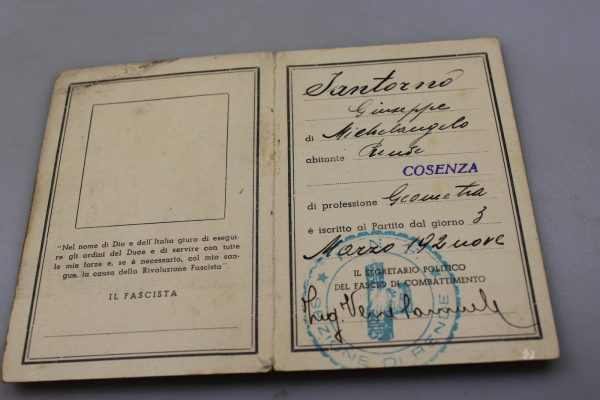 "Nel nome di Dio e dell'Italia giuro di esegui
re gli ordini del Duce e di servire con tutte
le mie forze e, se è necessario, col mio san-
gue, la causa della Rivoluzione Fascista".
IL FASCISTA
Santorno
Giuseppe
di Michelangelo
abitante Rende
COSENZA
di professione Geometra
è iscritto al Partito dal giorno 3
Marzo 192 nove
IL SEGRETARIO POLITICO
DEL FASCIO DI COMBATTIMENTO
SEZIONE DI RENDE